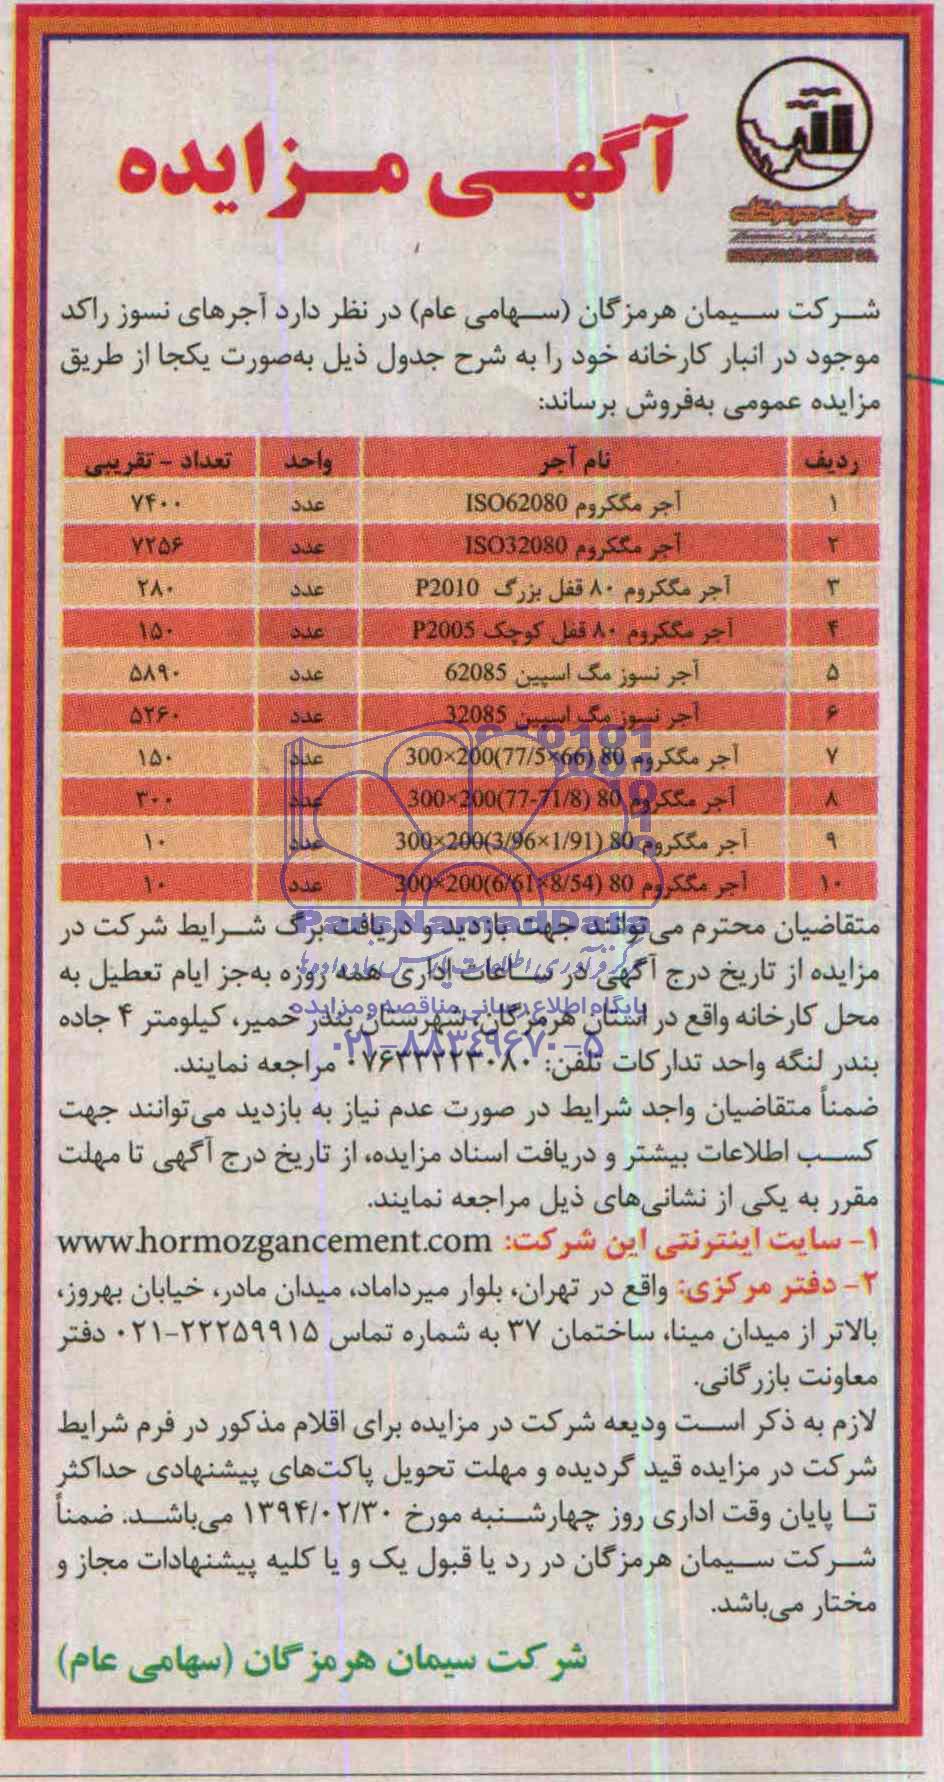 آگهی مزایده
سیمان هرمزگان
شرکت سیمان هرمزگان (سهامی عام) در نظر دارد آجرهای نسوز راکد
موجود در انبار کارخانه خود را به شرح جدول ذیل به‌صورت یکجا از طریق
مزایده عمومی به‌فروش برساند:
ردیف نام آجر واحد تعداد - تقریبی
۱ آجر مگکروم ISO62080 عدد ۷۴۰۰
۲ آجر مگکروم ISO32080 عدد ۷۲۵۶
۳ آجر مگکروم ۸۰ قفل بزرگ P2010 عدد ۲۸۰
۴ آجر مگکروم ۸۰ قفل کوچک P2005 عدد ۱۵۰
۵ آجر نسوز مگ اسپین 62085 عدد ۵۸۹۰
۶ آجر نسوز مگ اسپین 32085 عدد ۵۲۶۰
۷ آجر مگکروم 80 (66×77/5)300×200 عدد ۱۵۰
۸ آجر مگکروم 80 (77-71/8)300×200 عدد ۳۰۰
۹ آجر مگکروم 80 (3/96×1/91)300×200 عدد ۱۰
۱۰ آجر مگکروم 80 (6/61×8/54)300×200 عدد ۱۰
متقاضیان محترم می‌توانند جهت بازدید و دریافت برگ شرایط شرکت در
مزایده از تاریخ درج آگهی در ساعات اداری همه روزه به‌جز ایام تعطیل به
محل کارخانه واقع در استان هرمزگان، شهرستان بندر خمیر، کیلومتر ۴ جاده
بندر لنگه واحد تدارکات تلفن: ۰۷۶۳۳۲۲۳۰۸۰ مراجعه نمایند.
ضمناً متقاضیان واجد شرایط در صورت عدم نیاز به بازدید می‌توانند جهت
کسب اطلاعات بیشتر و دریافت اسناد مزایده، از تاریخ درج آگهی تا مهلت
مقرر به یکی از نشانی‌های ذیل مراجعه نمایند.
۱- سایت اینترنتی این شرکت: www.hormozgancement.com
۲- دفتر مرکزی: واقع در تهران، بلوار میرداماد، میدان مادر، خیابان بهروز،
بالاتر از میدان مینا، ساختمان ۳۷ به شماره تماس ۲۲۲۵۹۹۱۵-۰۲۱ دفتر
معاونت بازرگانی.
لازم به ذکر است ودیعه شرکت در مزایده برای اقلام مذکور در فرم شرایط
شرکت در مزایده قید گردیده و مهلت تحویل پاکت‌های پیشنهادی حداکثر
تا پایان وقت اداری روز چهارشنبه مورخ ۱۳۹۴/۰۲/۳۰ می‌باشد. ضمناً
شرکت سیمان هرمزگان در رد یا قبول یک و یا کلیه پیشنهادات مجاز و
مختار می‌باشد.
شرکت سیمان هرمزگان (سهامی عام)
ParsNamadData
پایگاه اطلاع رسانی مناقصه و مزایده
۰۲۱-۸۸۳۴۹۶۷۰-۵